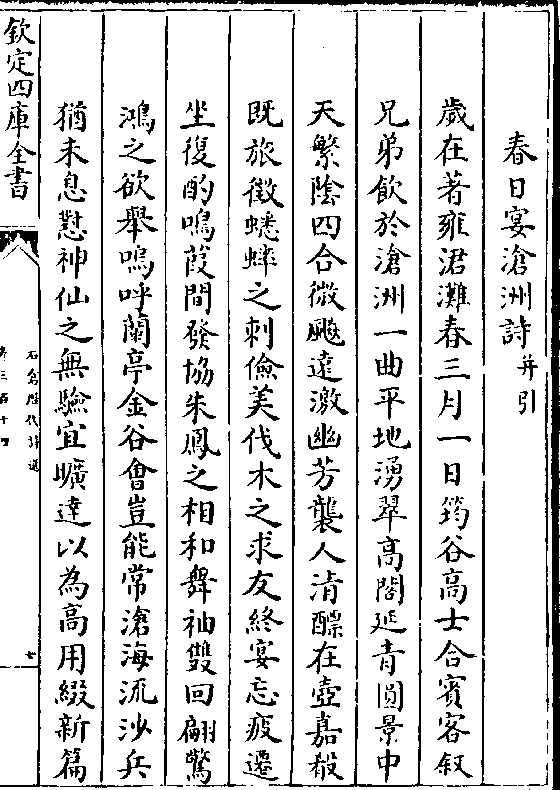 春日宴滄洲詩并引
歲在著雍涒灘春三月一日筠谷高士合賓客叙
兄弟飲於滄洲一曲平地湧翠高閣延青圓景中
天繁陰四合微飈遠激幽芳襲人清醥在壺嘉殽
既旅徴蟋蟀之刺儉美伐木之求友終宴忘疲遷
坐復酌鳴葭間發協朱鳳之相和舞袖雙回翩驚
鴻之欲舉嗚呼蘭亭金谷會豈能常滄海流沙兵
猶未息懟神仙之無驗宜曠達以為高用綴新篇
欽定四庫全書
石倉歴代詩選
七